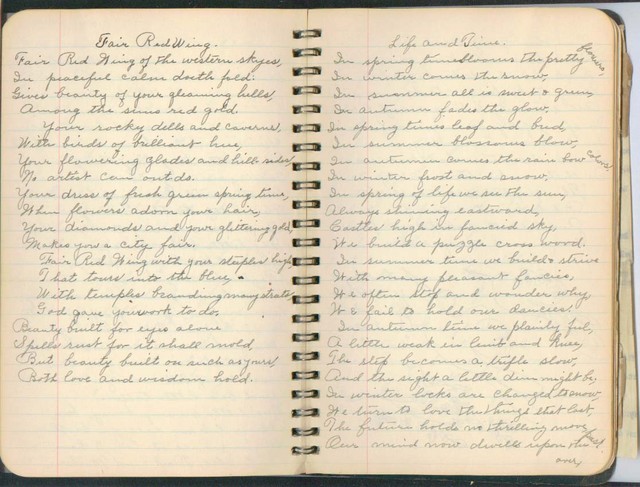 Fair Red Wing.
Fair Red Wing of the western skyes,
In peaceful calm doeth fold:
Gives beauty of your gleaming hills,
Among the suns red gold.
Your rocky dells and caverns,
With birds of brilliant hue,
Your flowering glades and hill-sides
No artist can outdo.
Your dress of fresh green spring time,
When flowers adorn your hair,
Your diamonds and your glittering gold,
Makes you a city fair.
Fair Red Wing with your steeples high,
That tours into the blue,
With temples branding many
God gave you work to do.
Beauty built for eyes alone
Spells rust for it shall mold
But beauty built on such as yours,
Both love and wisdom hold.
Life and Time.
In spring time blooms the pretty flowers,
In winter comes the snow,
In summer all is sweet & green,
In autumn fades the glow,
In spring times leaf and bud,
In summer blossoms blow,
In autumn comes the rain bow colors,
In winter frost and snow,
In spring of life we see the sun,
Always shining eastward,
Castles high in fancied sky,
We build a puzzle cross wood.
In summer time we build & strive
With many pleasant fancies,
We often stop and wonder why,
We fail to hold our
In autumn time we plainly feel,
A little weak in limb and knee,
The step becomes a trifle slow,
And the sight a little dim might be,
In winter locks are changed to snow,
We turn to love the things that last,
The future holds no thrilling move,
Our mind now dwells upon the past
over,